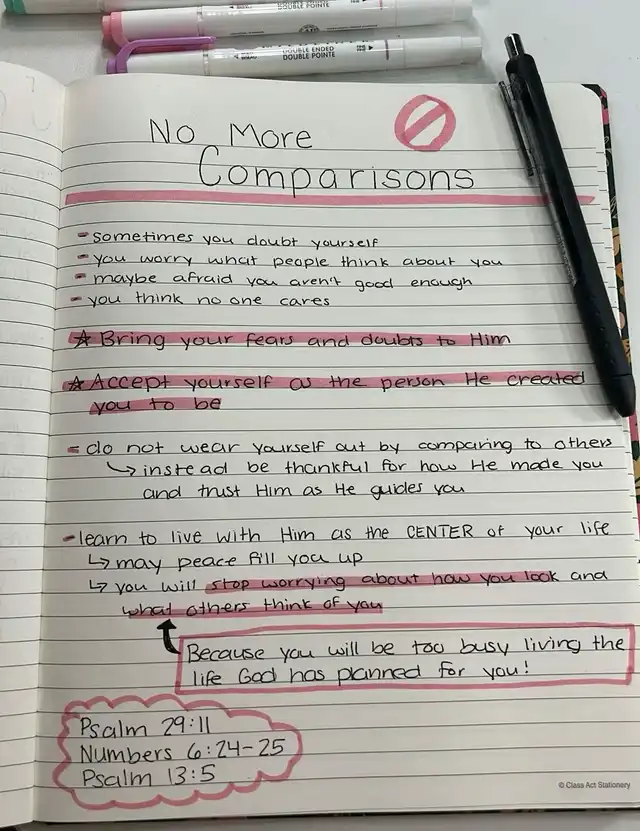 DOUBLE POINTE
DOUBLE ENDED
DOUBLE POINTE
No More
Comparisons
- sometimes you doubt yourself
- you worry what people think about you
- maybe afraid you aren't good enough
- you think no one cares
☆ Bring your fears and doubts to Him
☆ Accept yourself as the person He created
you to be
- do not wear yourself out by comparing to others
↳ instead be thankful for how He made you
and trust Him as He guides you
- learn to live with Him as the CENTER of your life
↳ may peace fill you up
↳ you will stop worrying about how you look and
what others think of you
Because you will be too busy living the
life God has planned for you!
Psalm 29:11
Numbers 6:24-25
Psalm 13:5
© Class Act Stationery